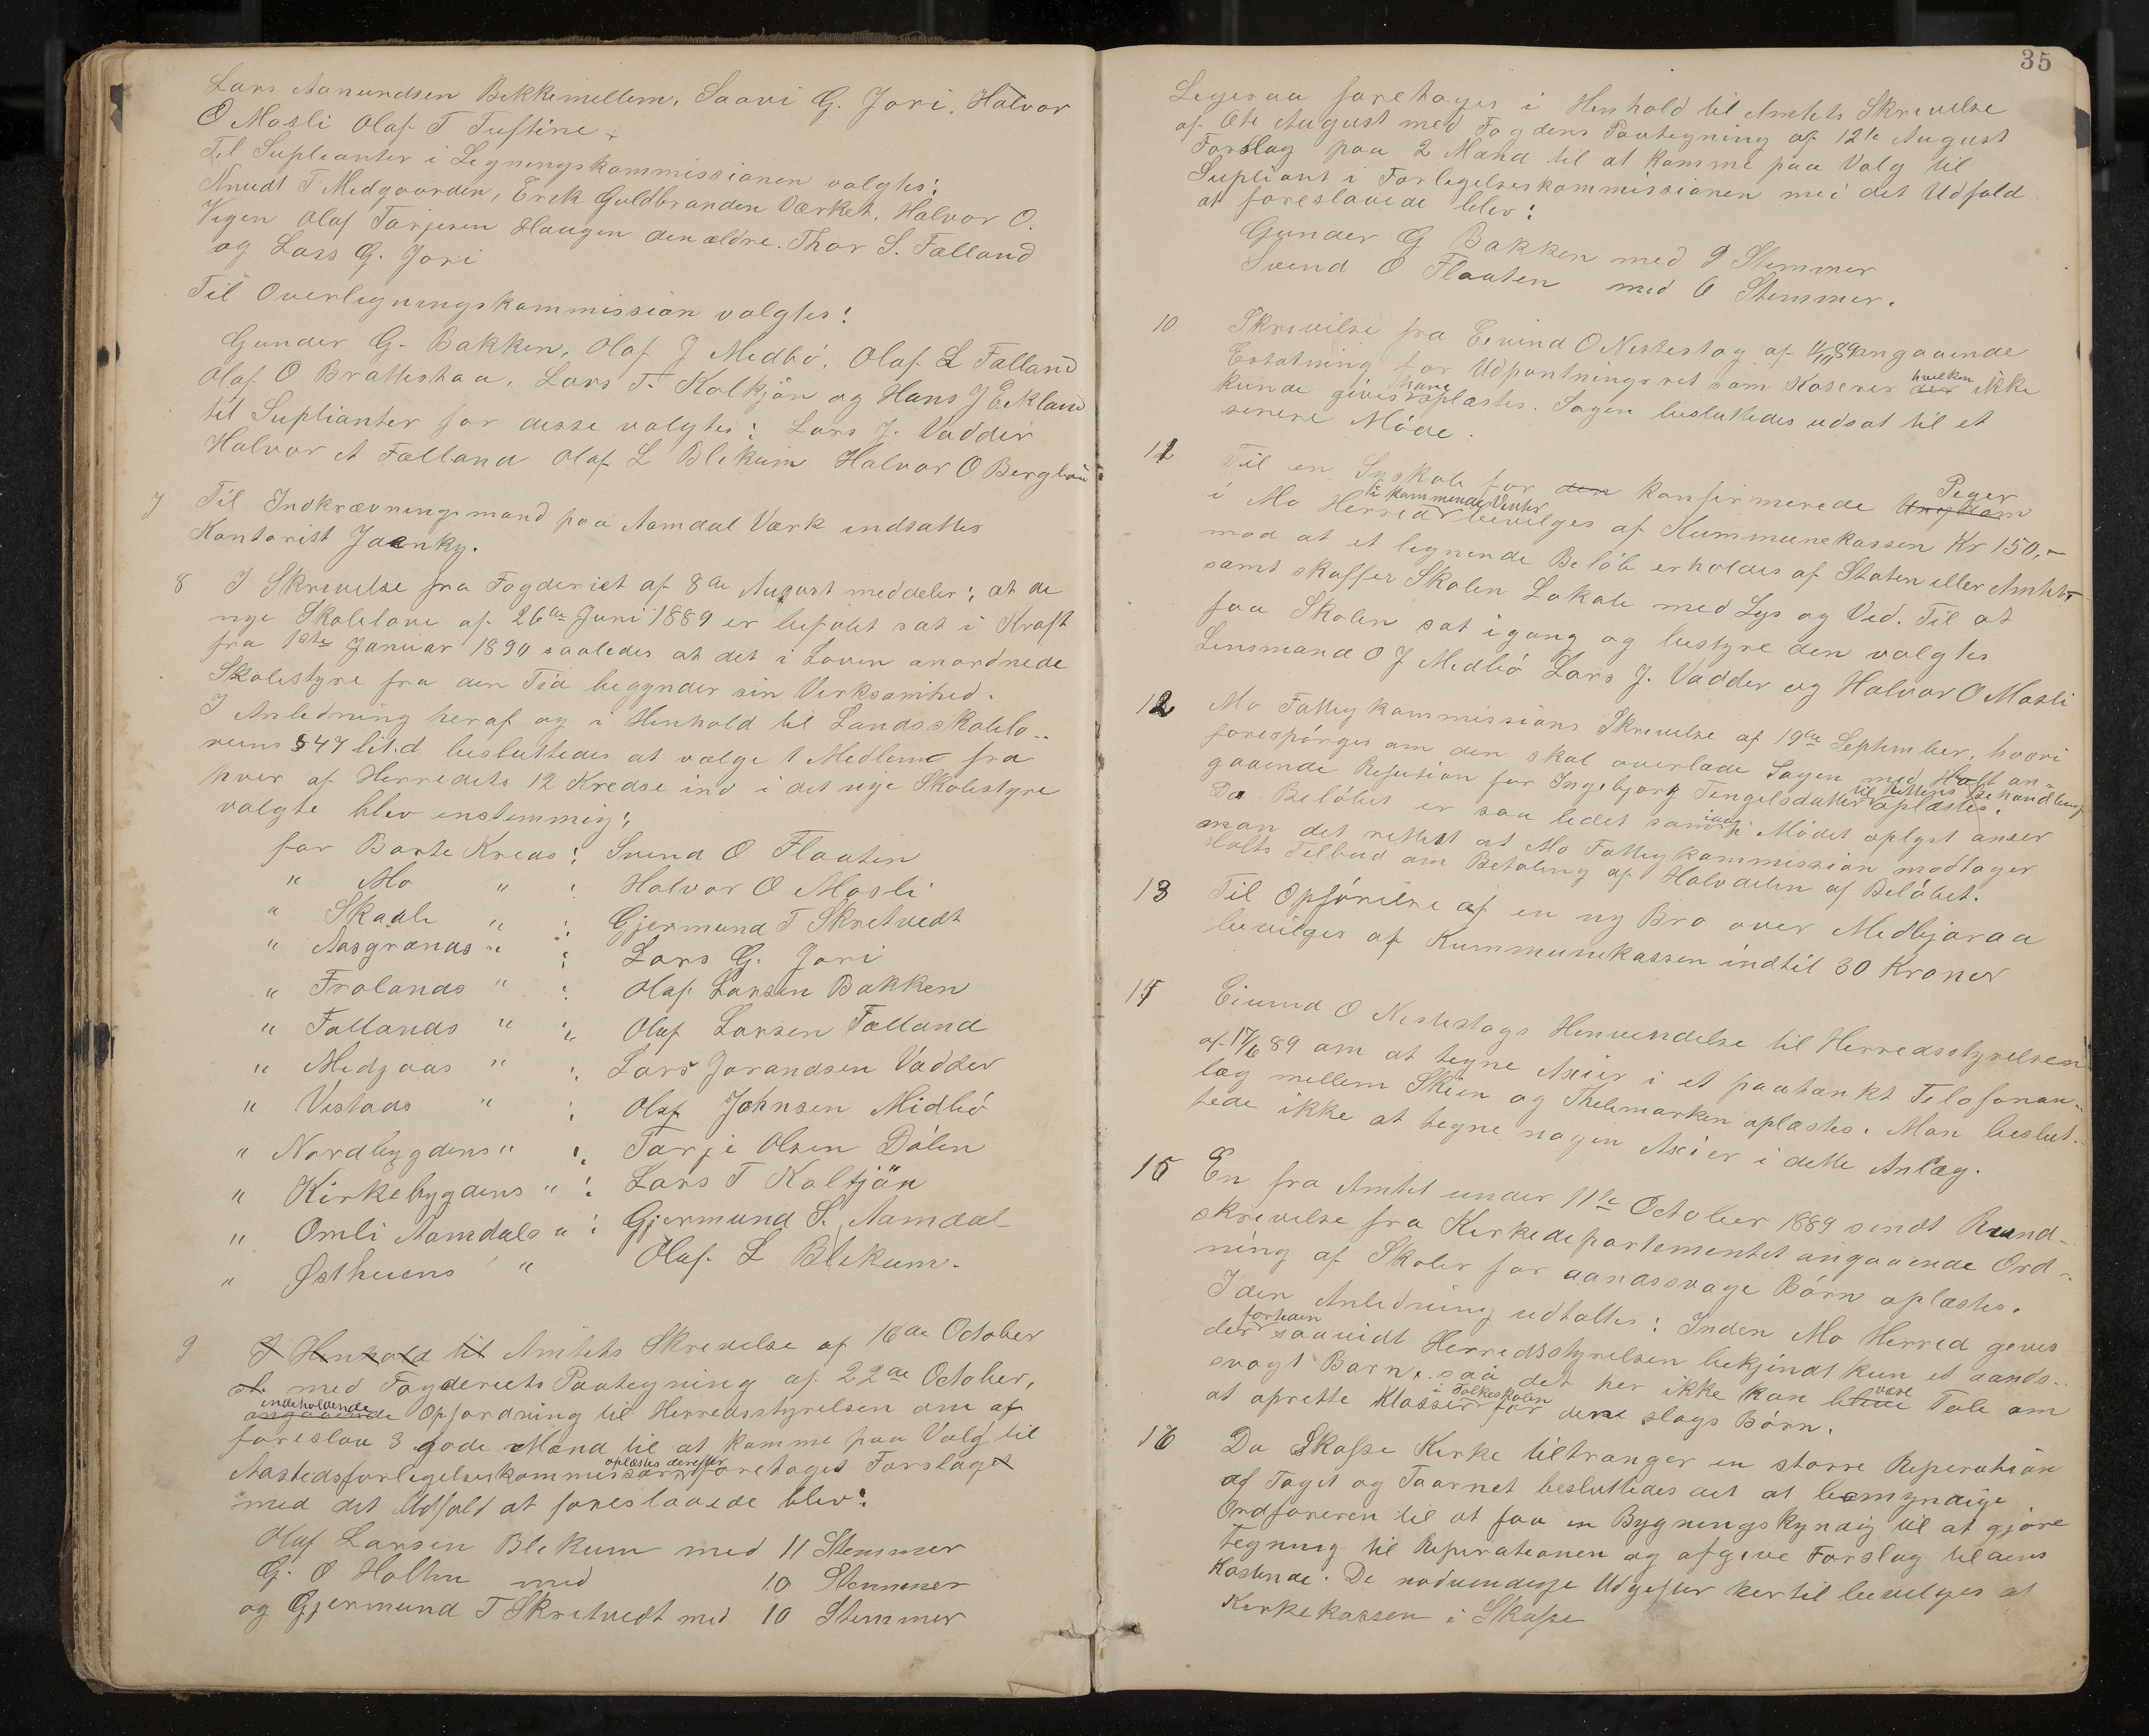 Lars Aanundsen Bekkemellem, Saavi G. Jori. Halvor
O Mosli Olaf T Tuftine.
Til Suplianter i Ligningskommissionen valgtes:
Knudt T Midgaarden, Erik Guldbranden Værket, Halvor O.
Vegen Olaf Tarjesen Haugen den ældre. Thor S. Falland
og Lars G. Jori
Til Overligningskommission valgtes:
Gunder G. Bakken, Olaf J Medbö, Olaf L Falland
Olaf O Brattestaa, Lars T. Kolkjön og Hans J Eekland
til Suplianter for disse valgtes: Lars J. Vadder
Halvor A Fælland Olaf L Blekum Halvor O Berglun
7 Til Indkrævningsmand paa Aamdal Værk indsattes
Kontorist Jaenky.
8 I Skrivelse fra Fogderiet af 8de August meddeler; at de
nye Skolelove af 26de Juni 1889 er befalet sat i Kraft
fra 1ste Januar 1890 saaledes at det i Loven anordnede
Skolestyre fra den Tid begynder sin Virksomhed.
I Anledning heraf og i Henhold til Landsskolelo-
vens §47 lit.d besluttedes at vælge 1 Medlem fra
hver af Herredets 12 Kredse ind i det nye Skolestyre
valgte blev enstemmig:
for Barte Kreds: Svend O Flaaten
" Mo " : Halvor O Mosli
" Skaali " : Gjermund T Skretvedt
" Aasgrænds " : Lars G. Jori
" Frolands " : Olaf Larsen Bakken
" Fallands " : Olaf Larsen Falland
" Midgaas " : Lars Jorandsen Vadder
" Vistads " : Olaf Johnsen Midbö
" Nordbygdens " : Tarje Olsen Dölen
" Kirkebygdens " : Lars T Koltjön
" Omli Aamdals " : Gjermund S. Aamdal
" Østheiens " Olaf L Blekum.
9 I Henhold til Amtets Skrivelse af 16de October
med Fogderiets Paategning af 22de October,
indeholdende
angaaende Opfordring til Herredsstyrelsen om at
foreslaa 3 gode Mænd til at komme paa Valg til
oplæstes derefter
Aastedsforligelseskommissær foretoges Forslaget
med det Udfald at foreslaaede blev:
Olaf Larsen Blekum med 11 Stemmer
G. O Holtin med 10 Stemmer
og Gjermund T Skretvedt med 10 Stemmer
35
Ligesaa foretoges i Henhold til Amtets Skrivelse
af 6te August med Fogdens Paategning af 12te August
Forslag paa 2 Mænd til at komme paa Valg til
Supliant i Forligelseskommissionen med det Udfald
at foreslaaede blev:
Gunder G Bakken med 9 Stemmer
Svend O Flaaten med 6 Stemmer.
10 Skrivelse fra Eivind O Nestestog af 11/10 89 angaaende
hvilken
Erstatning for Udpantningsret som Kaserer der ikke
ham
kunde gives oplæstes. Sagen besluttedes udsat til et
senere Möde.
11 Piger
Til en Syskole for den konfirmerede Ungdom
i kommende Vinter
i Mo Herred bevilges af Kummunekassen Kr 150,-
mod at et lignende Belöb erholdes af Staten eller Amtet
samt skaffer Skolen Lokale med Lys og Ved. Til at
faa Skolen sat igang og bestyre den valgtes
Lensmand O J Medbö Lars J. Vadder og Halvor O Mosli
12 Mo Fattigkommissions Skrivelse af 19de September, hvori
forespörges om den skal overlade Sagen med Holt an-
til Rettens Behandling
gaaende Refusion for Ingebjorg Tengelsdatter oplæstes.
idag
Da Belöbet er saa lidet som i Mödet oplyst anser
man det rettest at Mo Fattigkommission modtager
Holts Tilbud om Betaling af Halvdelen af Belöbet.
13 Til Opförelse af en ny Bro over Medbjöraa
bevilges af Kummunekassen indtil 30 Kroner
14 Eivind O Nestestogs Henvendelse til Herredsstyrelsen
af 17/6 89 om at tegne Axier i et paatænkt Telefonan-
læg mellem Skien og Thelemarken oplæstes. Man beslut-
tede ikke at tegne nogen Axier i dette Anlæg.
15 En fra Amtet under 11te October 1889 sendt Rund-
skrivelse fra Kirkedepartementet angaaende Ord-
ning af Skoler for aandssvage Börn oplæstes.
I den Anledning udtaltes: Inden Mo Herred geves
forhaan
der saavidt Herredsstyrelsen bekjendt kun et aands-
svagt Barn, saa det her ikke kan blive være Tale om
i Folkeskolen
at oprette Klasser for dene slags Börn.
16 Da Skafse Kirke tiltrænger en större Reperation
af Taget og Taarnet besluttedes det at bemyndige
Ordföreren til at faa en Bygningskyndig til at gjöre
Tegning til Reperationen og afgive Forslag til dens
Kostende. De nödvendige Udgifter hertil bevilges af
Kirkekassen i Skafse